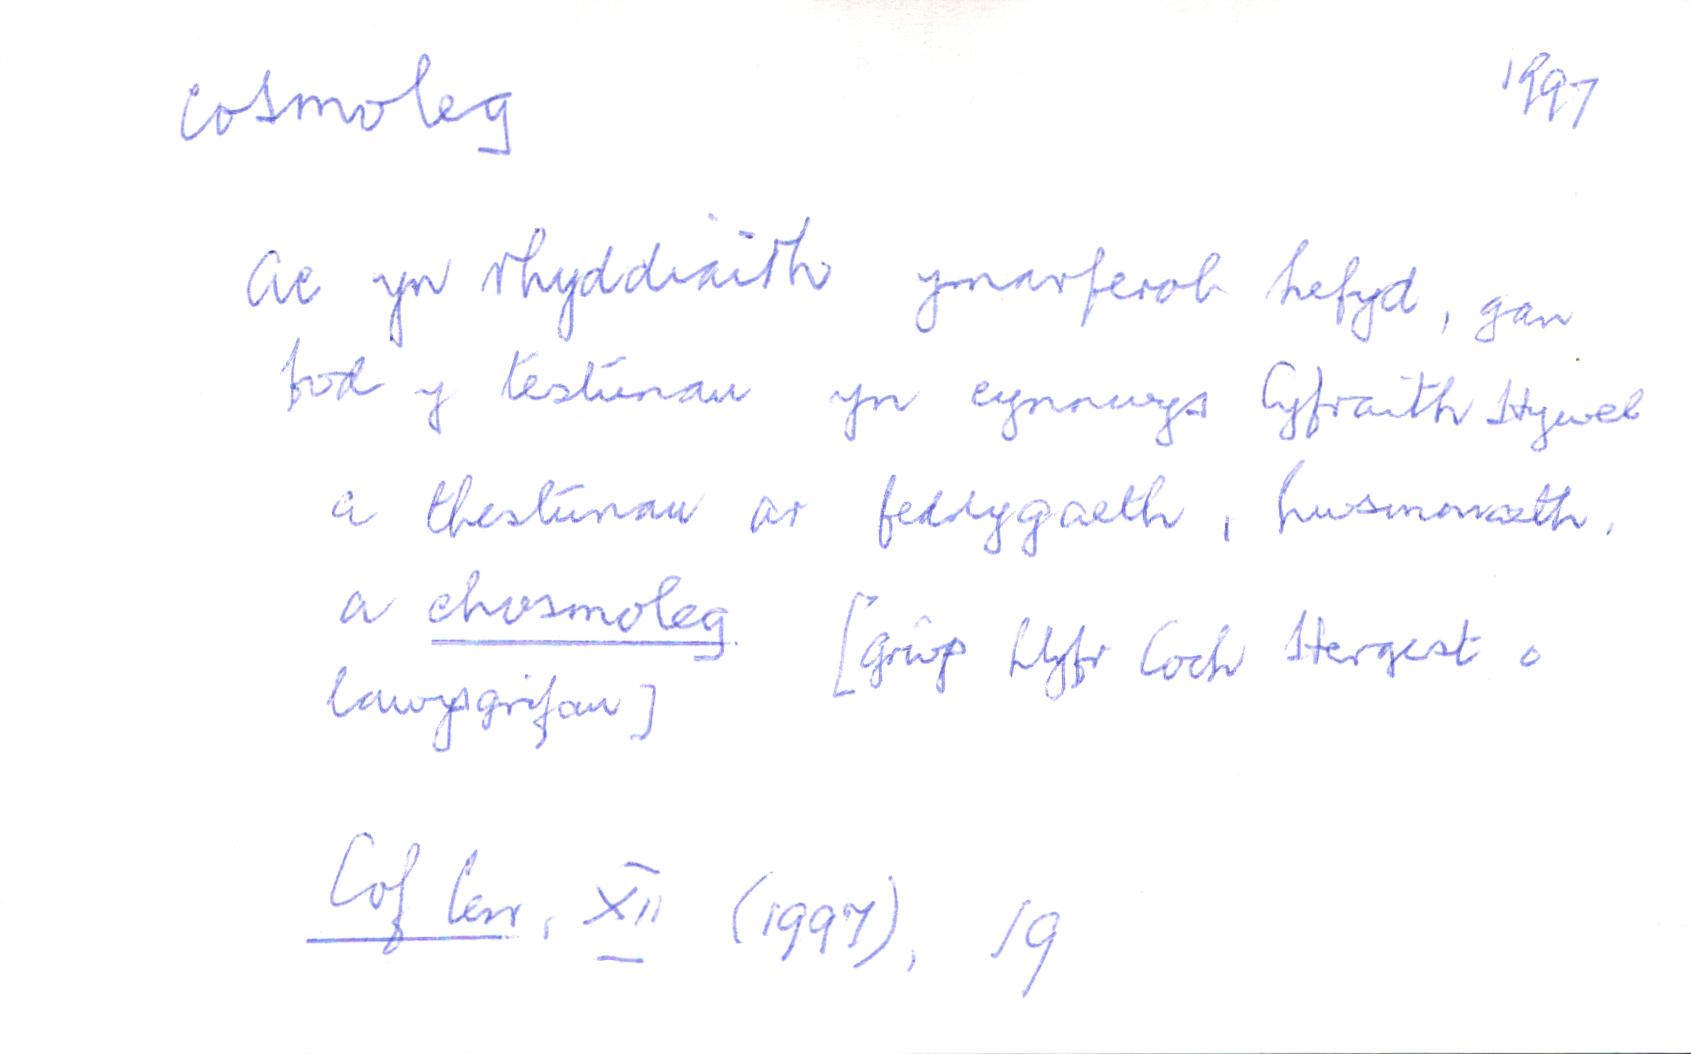 cosmoleg 1997
Ac yn rhyddiaith ymarferol hefyd, gan
bod y testunau yn cynnwys Cyfraith Hywel
a thestunau ar feddygaeth, husmonaeth,
a chosmoleg [grŵp Llyfr Coch Hergest o
lawysgrifau]
Cof Cen, XII (1997), 19